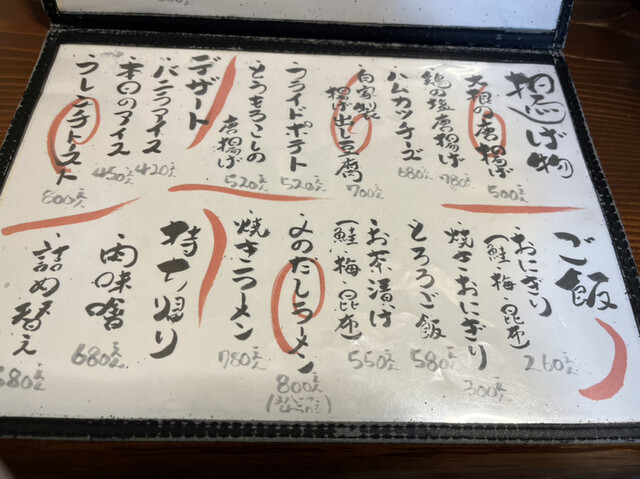 揚げ物
大根の唐揚げ
500えん
鶏の塩唐揚げ
780えん
ハムカツチーズ
680えん
自家製
揚げ出し豆腐
700えん
フライドポテト
520えん
とうもろこしの
唐揚げ
520えん
デザート
バニラアイス
420えん
本日のアイス
450えん
フレンチトースト
800えん
ご飯
おにぎり
(鮭・梅・昆布)
260えん
焼きおにぎり
300えん
とろろご飯
580えん
お茶漬け
(鮭・梅・昆布)
550えん
〆のだしラーメン
800えん
焼きラーメン
780えん
持ち帰り
肉味噌
680えん
詰め替え
580えん